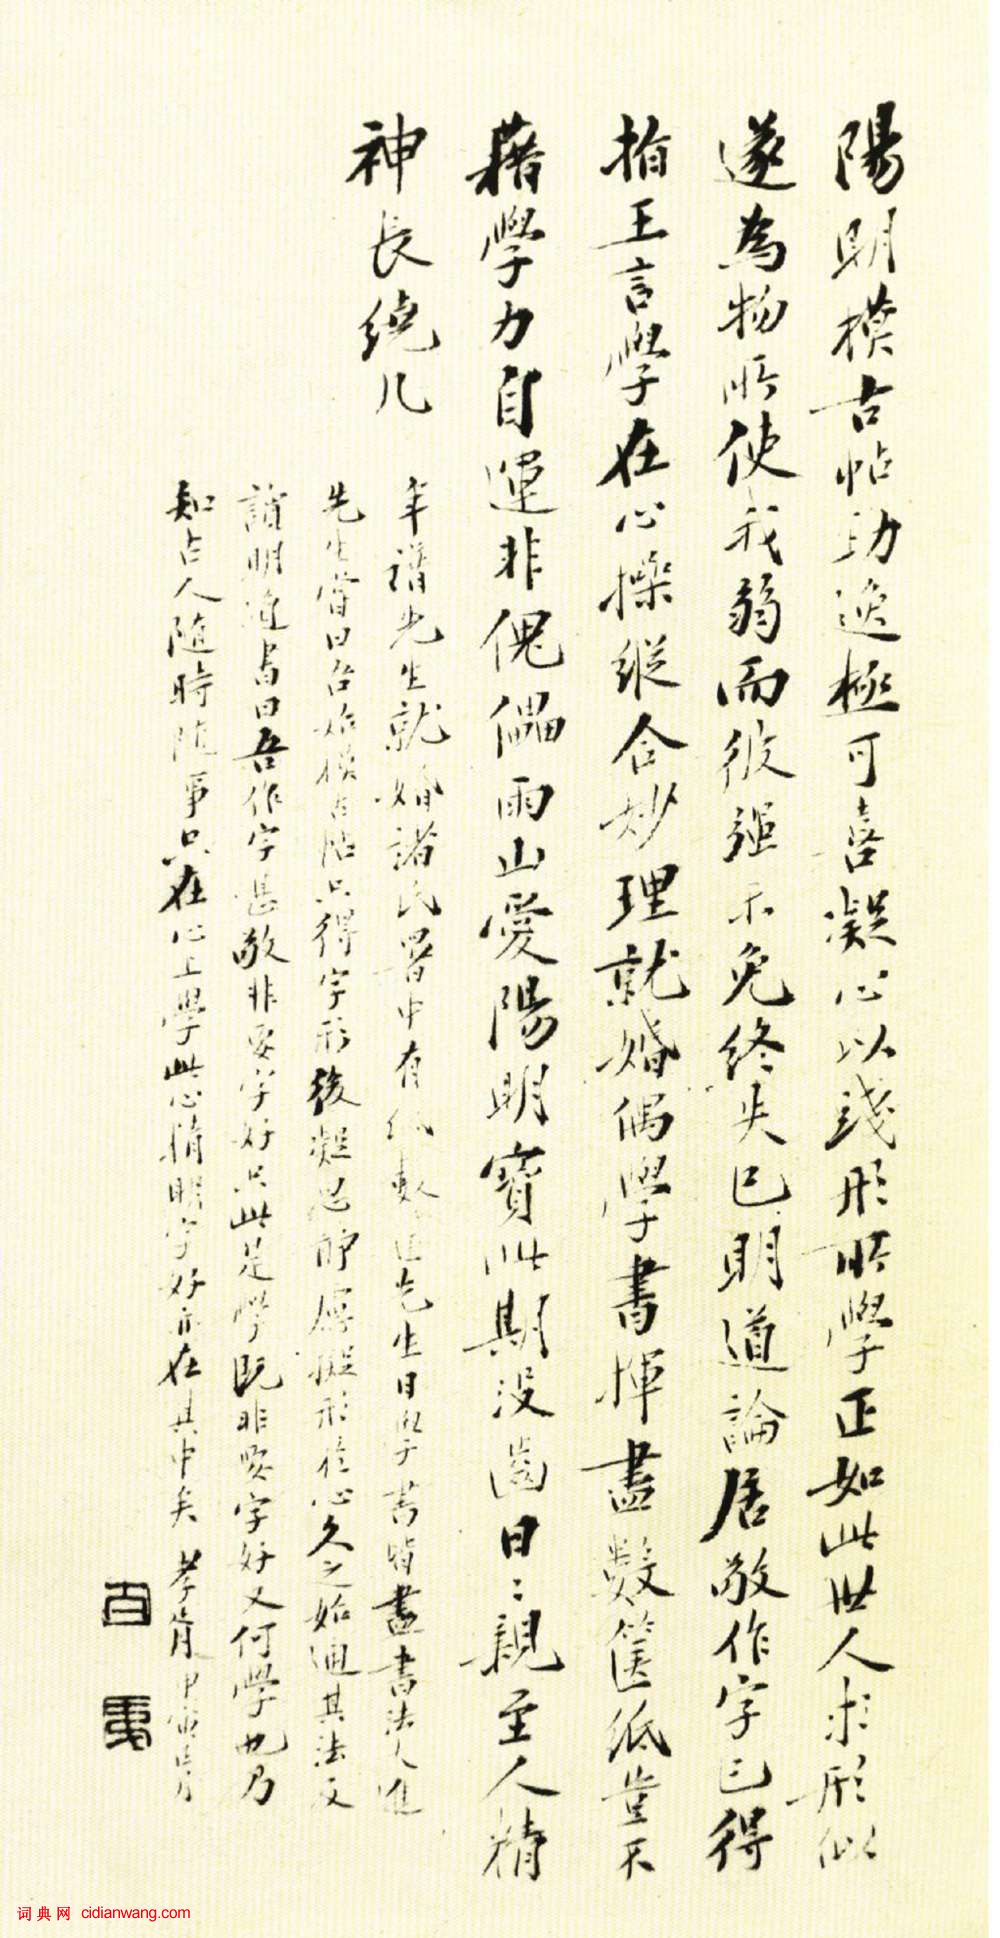 陽明模古帖功逸極可喜凝心以踐形所學正如此世人求形似
遂為物所使我弱而彼強不免終失己明道論居敬作字已得
指王言學在心操縱合妙理就婚偶學書揮盡數篋紙豈不
藉學力自運非傀儡雨山愛陽明寶此期沒齒日〻親至人精
神長繞几
年譜先生就婚諸氏署中有紙數 先生日學書皆盡書法大進
先生嘗曰吾始模古帖只得字形後凝思靜慮擬形於心久之始通其法及
讀明道書曰吾作字甚敬非要字好只此是學既非要字好又何學也乃
知古人隨時隨事只在心上學此心精明字好亦在其中矣 孝胥 甲寅
詞典网 cidianwang.com